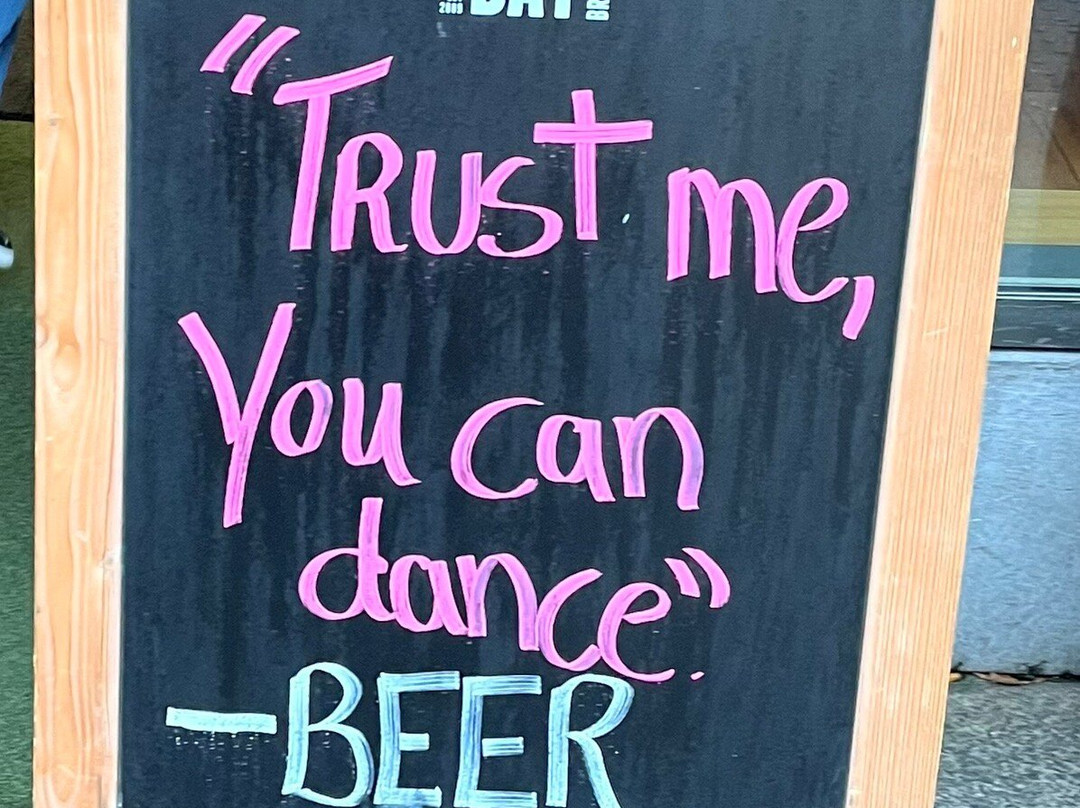 2009 DAY
“Trust me,
You can
dance”.
-BEER